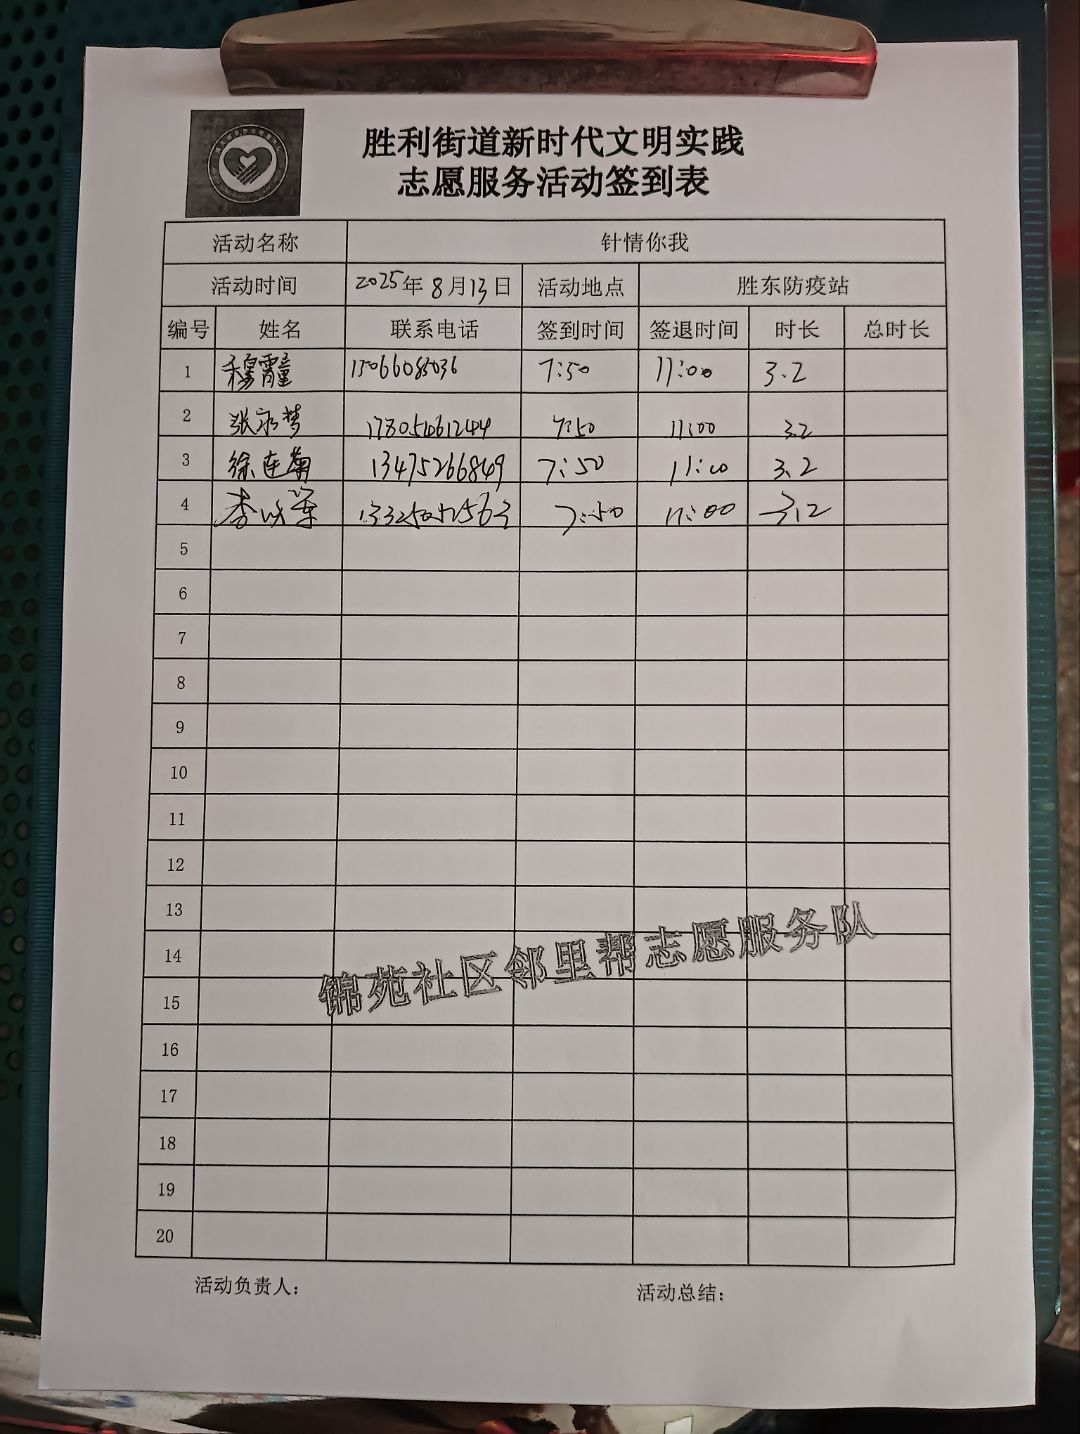 胜利街道新时代文明实践
志愿服务活动签到表
活动名称 针情你我
活动时间 2025年8月13日 活动地点 胜东防疫站
编号 姓名 联系电话 签到时间 签退时间 时长 总时长
1 穆霄童 15066085036 7:50 11:00 3.2
2 张永梦 7:50 11:00 3.2
3 徐连菊 13475266849 7:50 11:00 3.2
4 李 7:50 11:00 3.2
5
6
7
8
9
10
11
12
13
14
锦苑社区邻里帮志愿服务队
15
16
17
18
19
20
活动负责人： 活动总结：